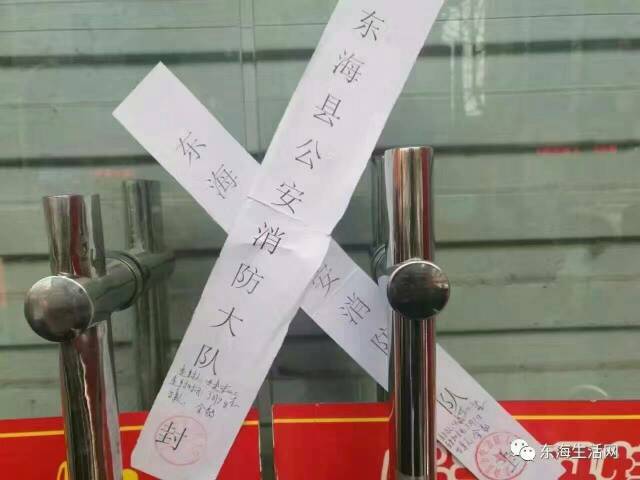 东海县公安消防大队
封
东海
安消防
队
东海生活网